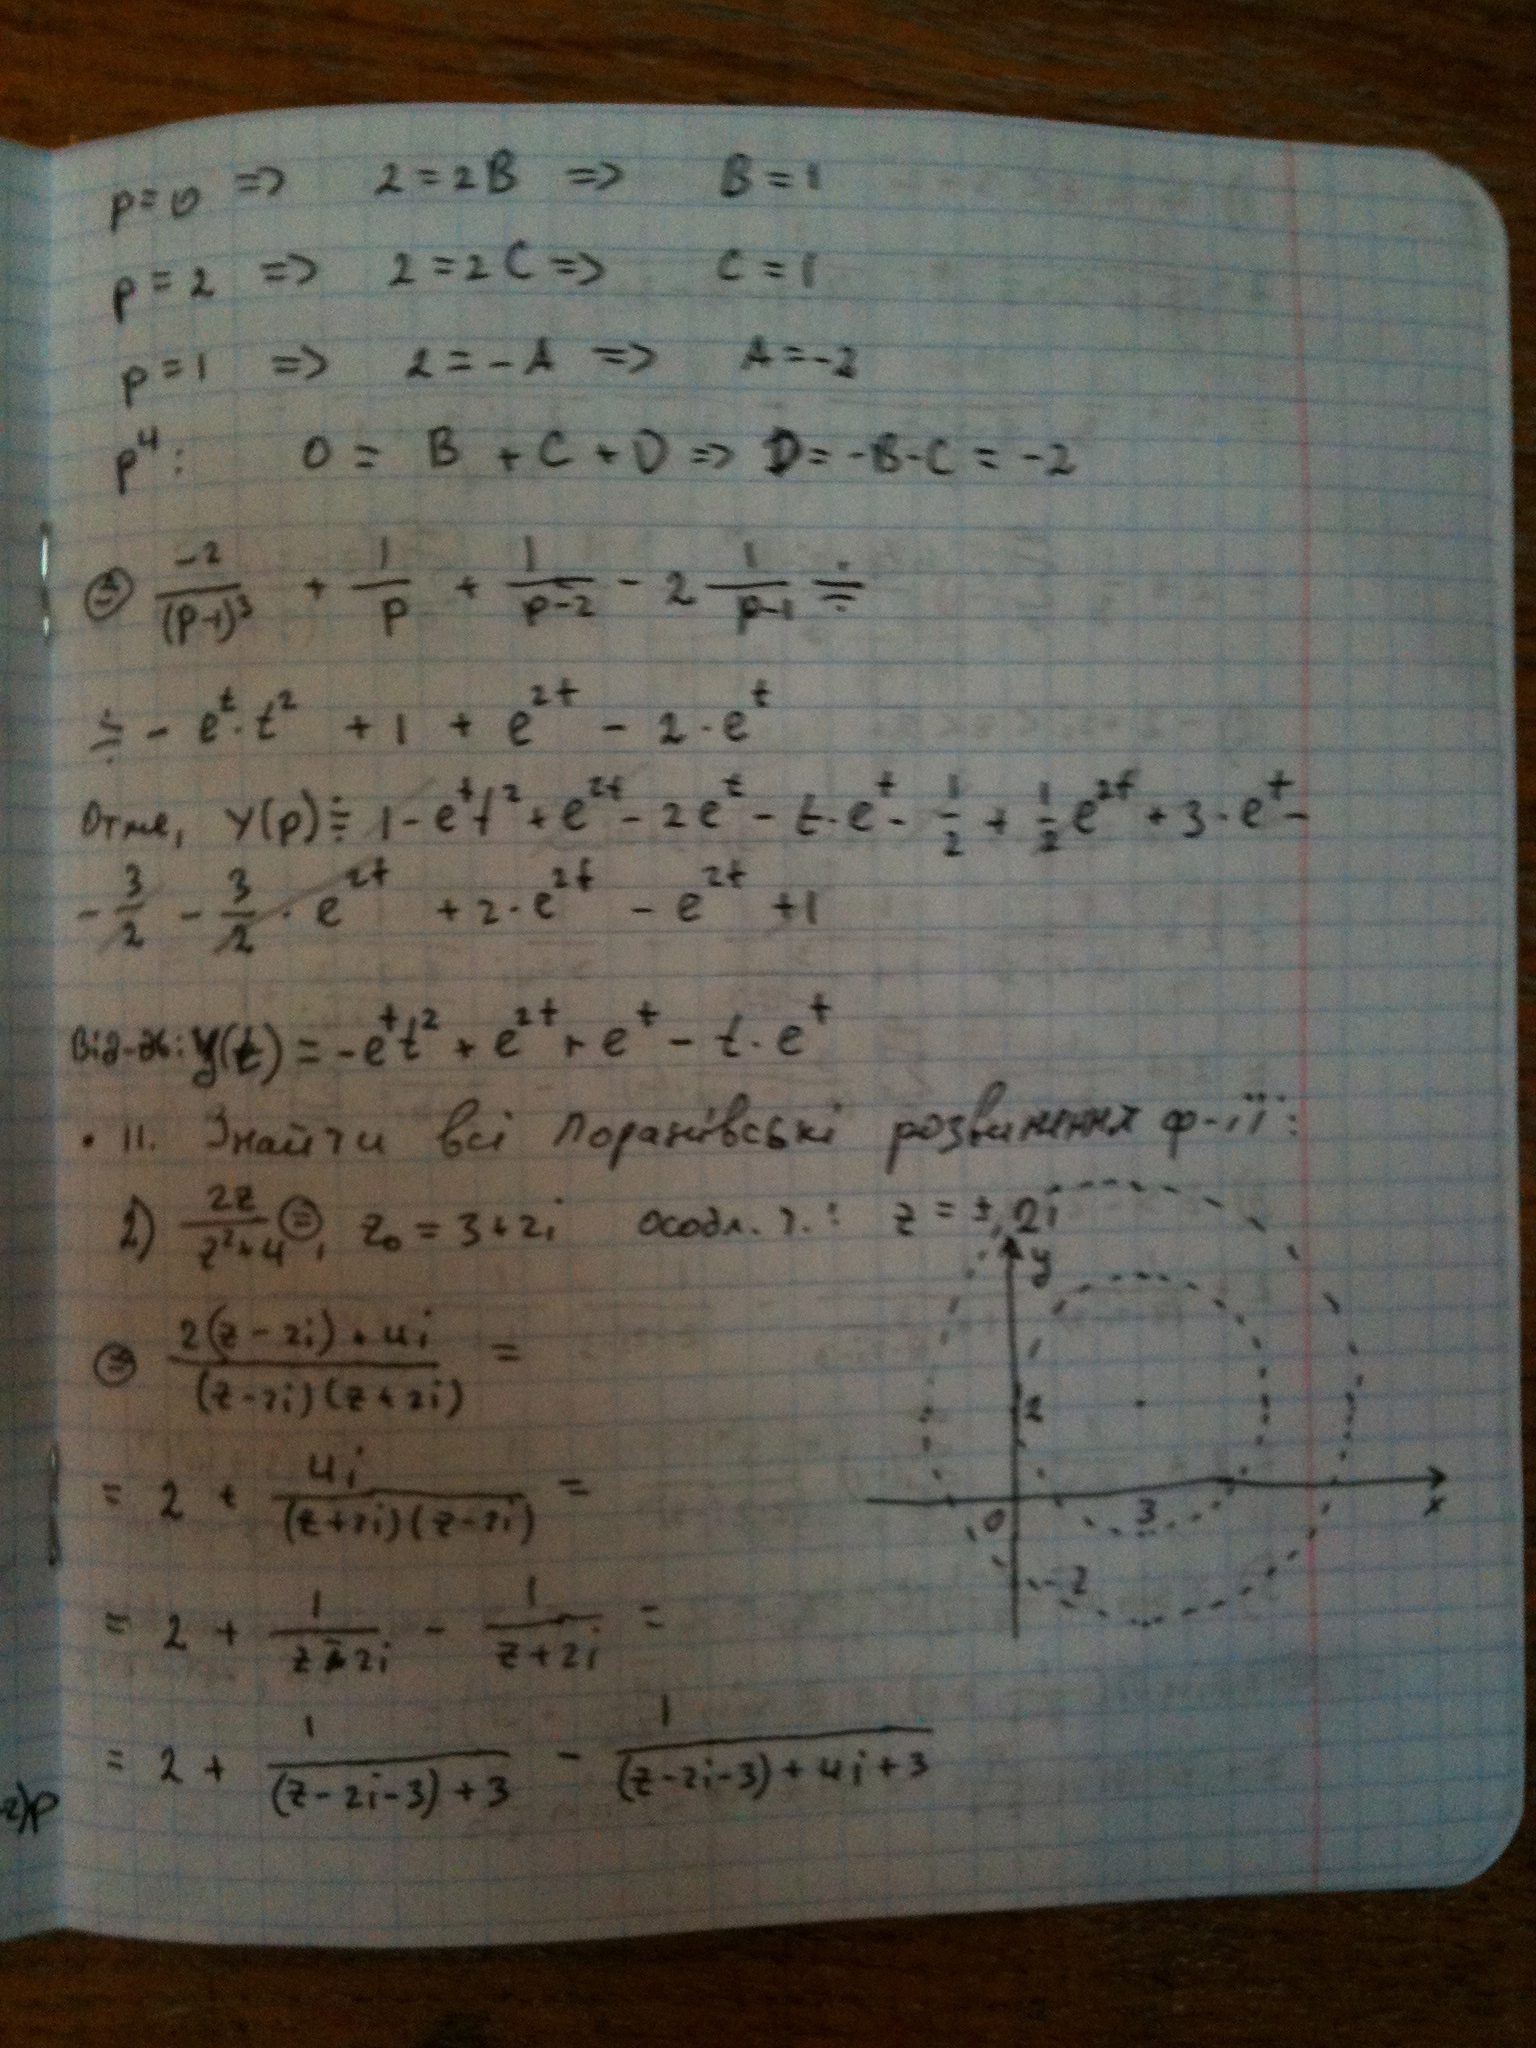 p=0 => 2=2B => B=1
p=2 => 2=2C => C=1
p=1 => 2=-A => A=-2
p⁴: 0 = B + C + D => D=-B-C = -2
⊜ -2/(p-1)³ + 1/p + 1/(p-2) - 2 1/(p-1) ≑
≑ - e^t·t² + 1 + e^2t - 2·e^t
Отже, Y(p) ≑ 1 - e^t t² + e^2t - 2e^t - t·e^t - 1/2 + 1/2 e^2t + 3·e^t -
- 3/2 - 3/2·e^2t + 2·e^2t - e^2t + 1
Від-дь: y(t) = -e^t t² + e^2t + e^t - t·e^t
• 11. Знайти всі Лоранівські розвинення ф-ії:
2) 2z/(z²+4) ⊜, z₀ = 3+2i особл. т.: z = ±2i
y
⊜ (2(z-2i)+4i)/((z-2i)(z+2i)) =
2
= 2 + 4i/((z+2i)(z-2i)) =
x
0 3
-2
= 2 + 1/(z-2i) - 1/(z+2i) =
= 2 + 1/((z-2i-3)+3) - 1/((z-2i-3)+4i+3)
)p